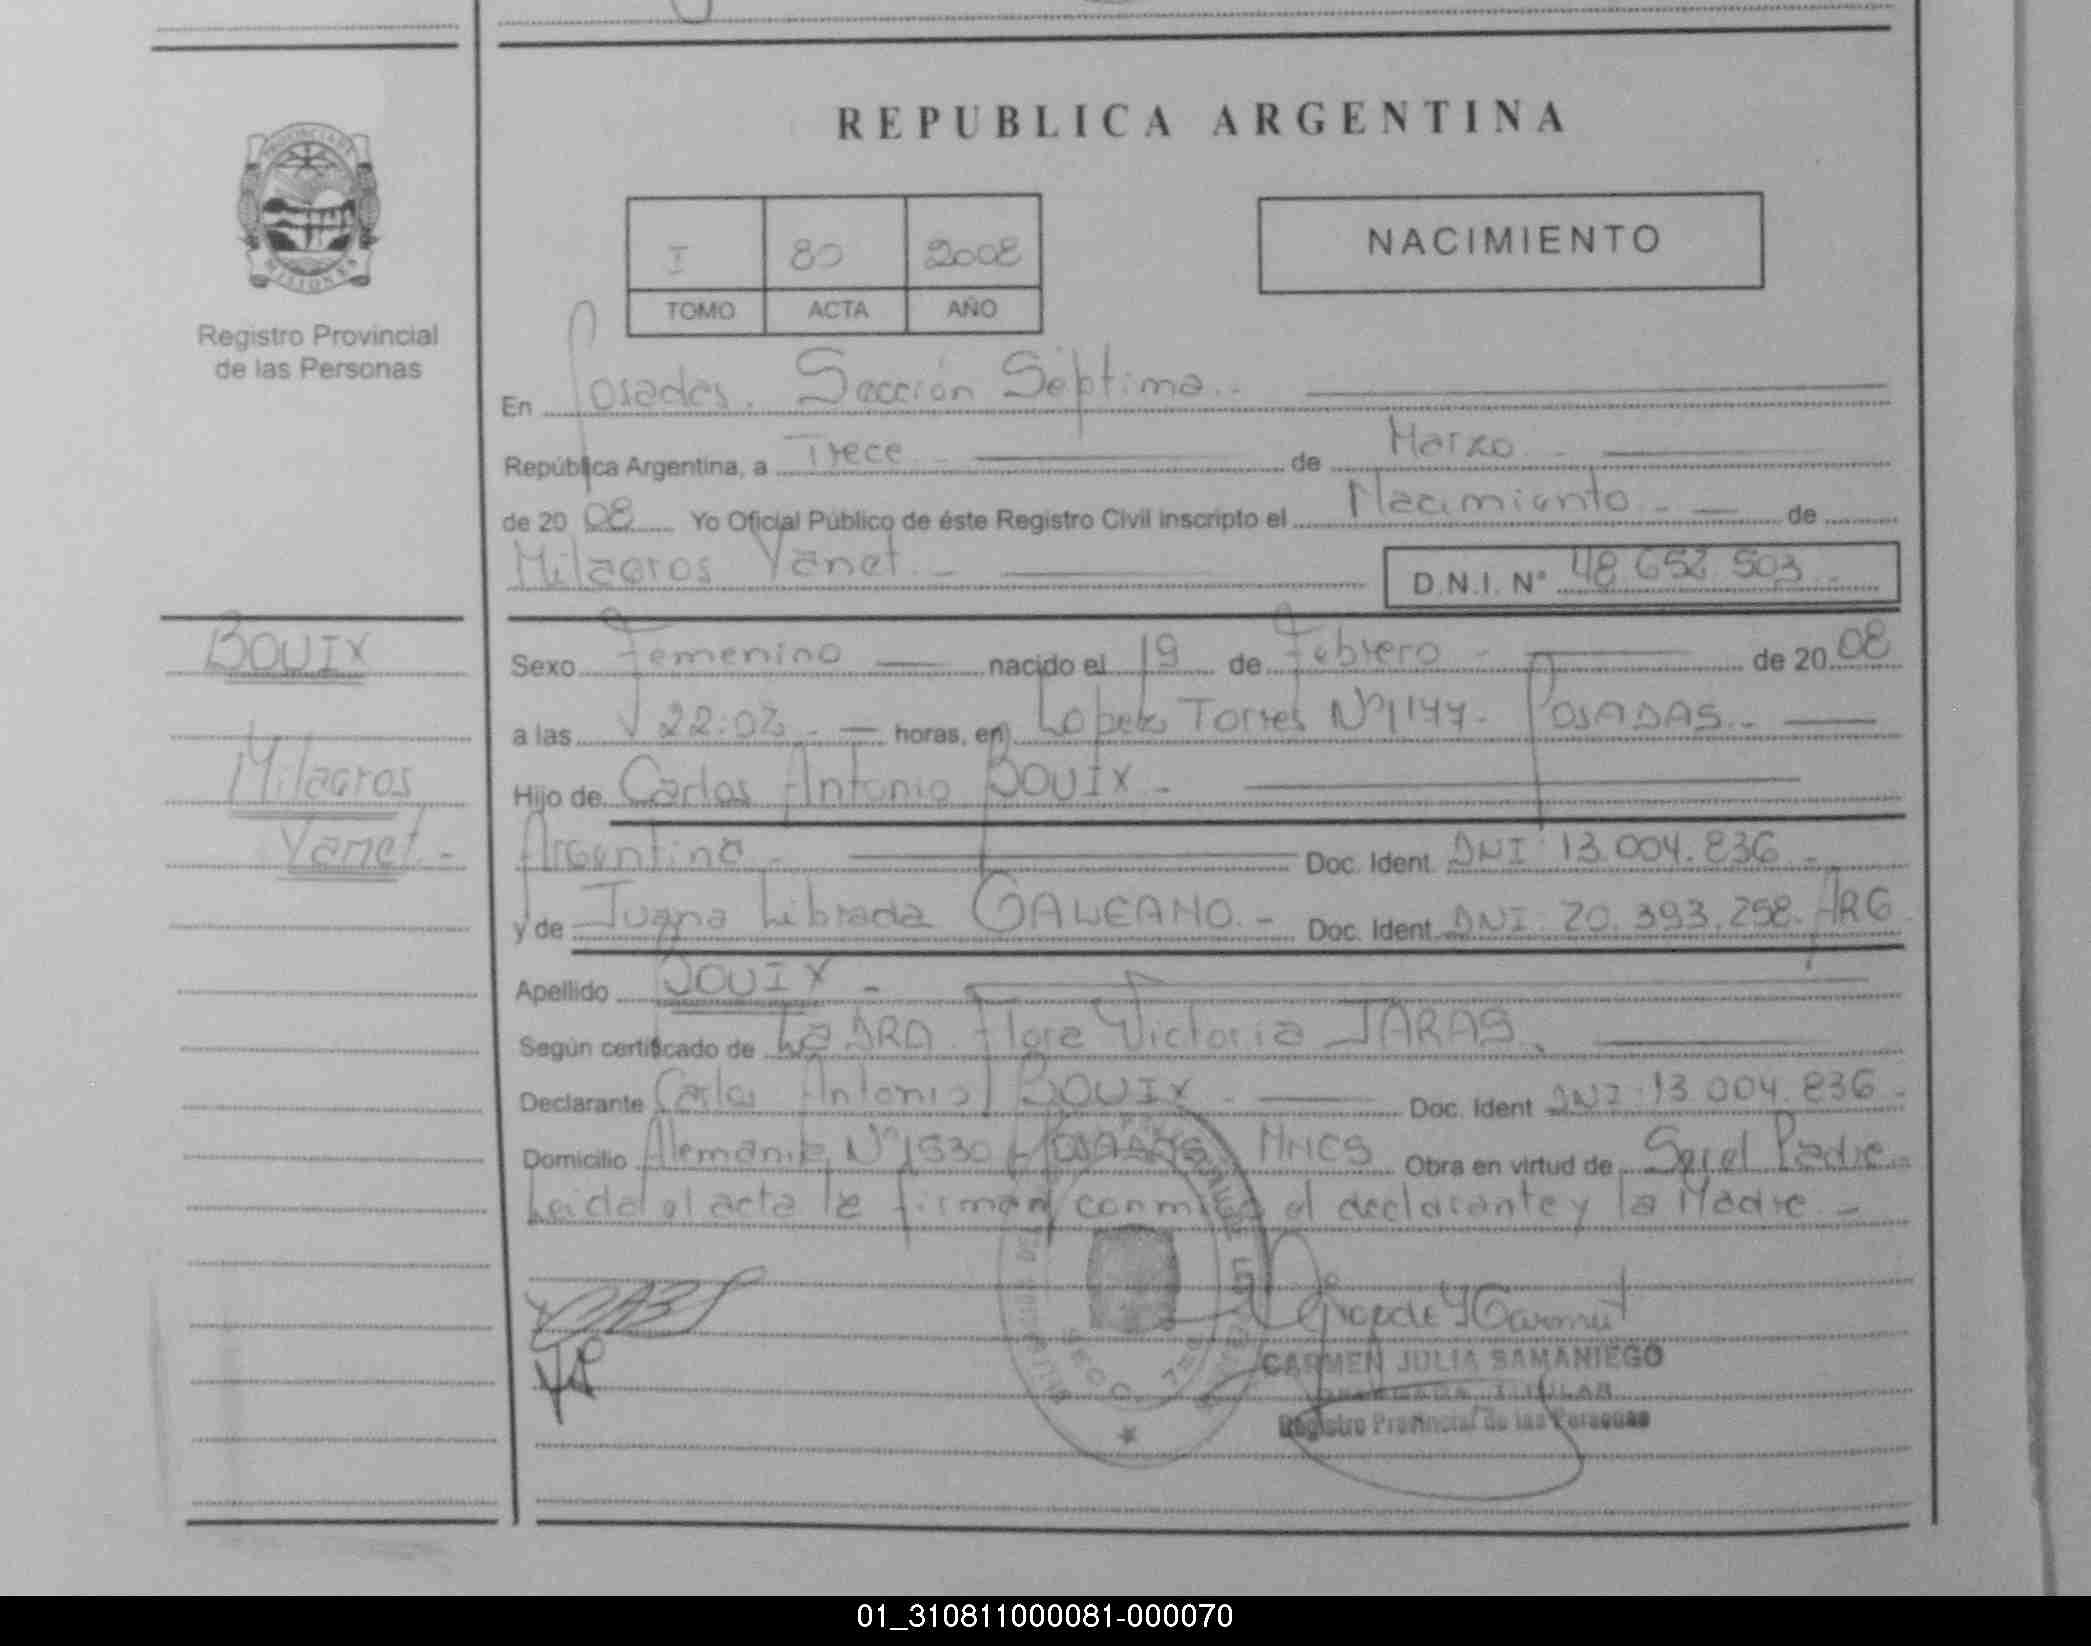 REPUBLICA ARGENTINA
PROVINCIA DE
MISIONES
Registro Provincial
de las Personas
I 80 2008
TOMO ACTA AÑO
NACIMIENTO
En Posadas. Sección Séptima.-
República Argentina, a Trece - de Marzo -
de 20 08 Yo Oficial Público de éste Registro Civil inscripto el Nacimiento.- de
Milagros Yanet.- D.N.I. N° 48.652.503.-
BOUIX
Milagros
Yanet.-
Sexo Femenino nacido el 19 de Febrero - de 20 08
a las 22:02.- horas, en Lopez Torres Nº1144- POSADAS.-
Hijo de Carlos Antonio BOUIX.-
Argentino.- Doc. Ident. DNI 13.004.836.-
y de Juana Librada GALEANO.- Doc. Ident. DNI: 20.393.258. ARG
Apellido BOUIX -
Según certificado de La DRA. Flora Victoria JARAS.
Declarante Carlos Antonio BOUIX - Doc. Ident DNI:13.004.836-
Domicilio Alemania Nº1530 - POSADAS MNES Obra en virtud de Ser el Padre.-
Leida el acta la firman conmigo el declarante y la Madre.-
CARMEN JULIA SAMANIEGO
TITULAR
Registro Provincial de las Personas
SECC. 7ma
01_310811000081-000070